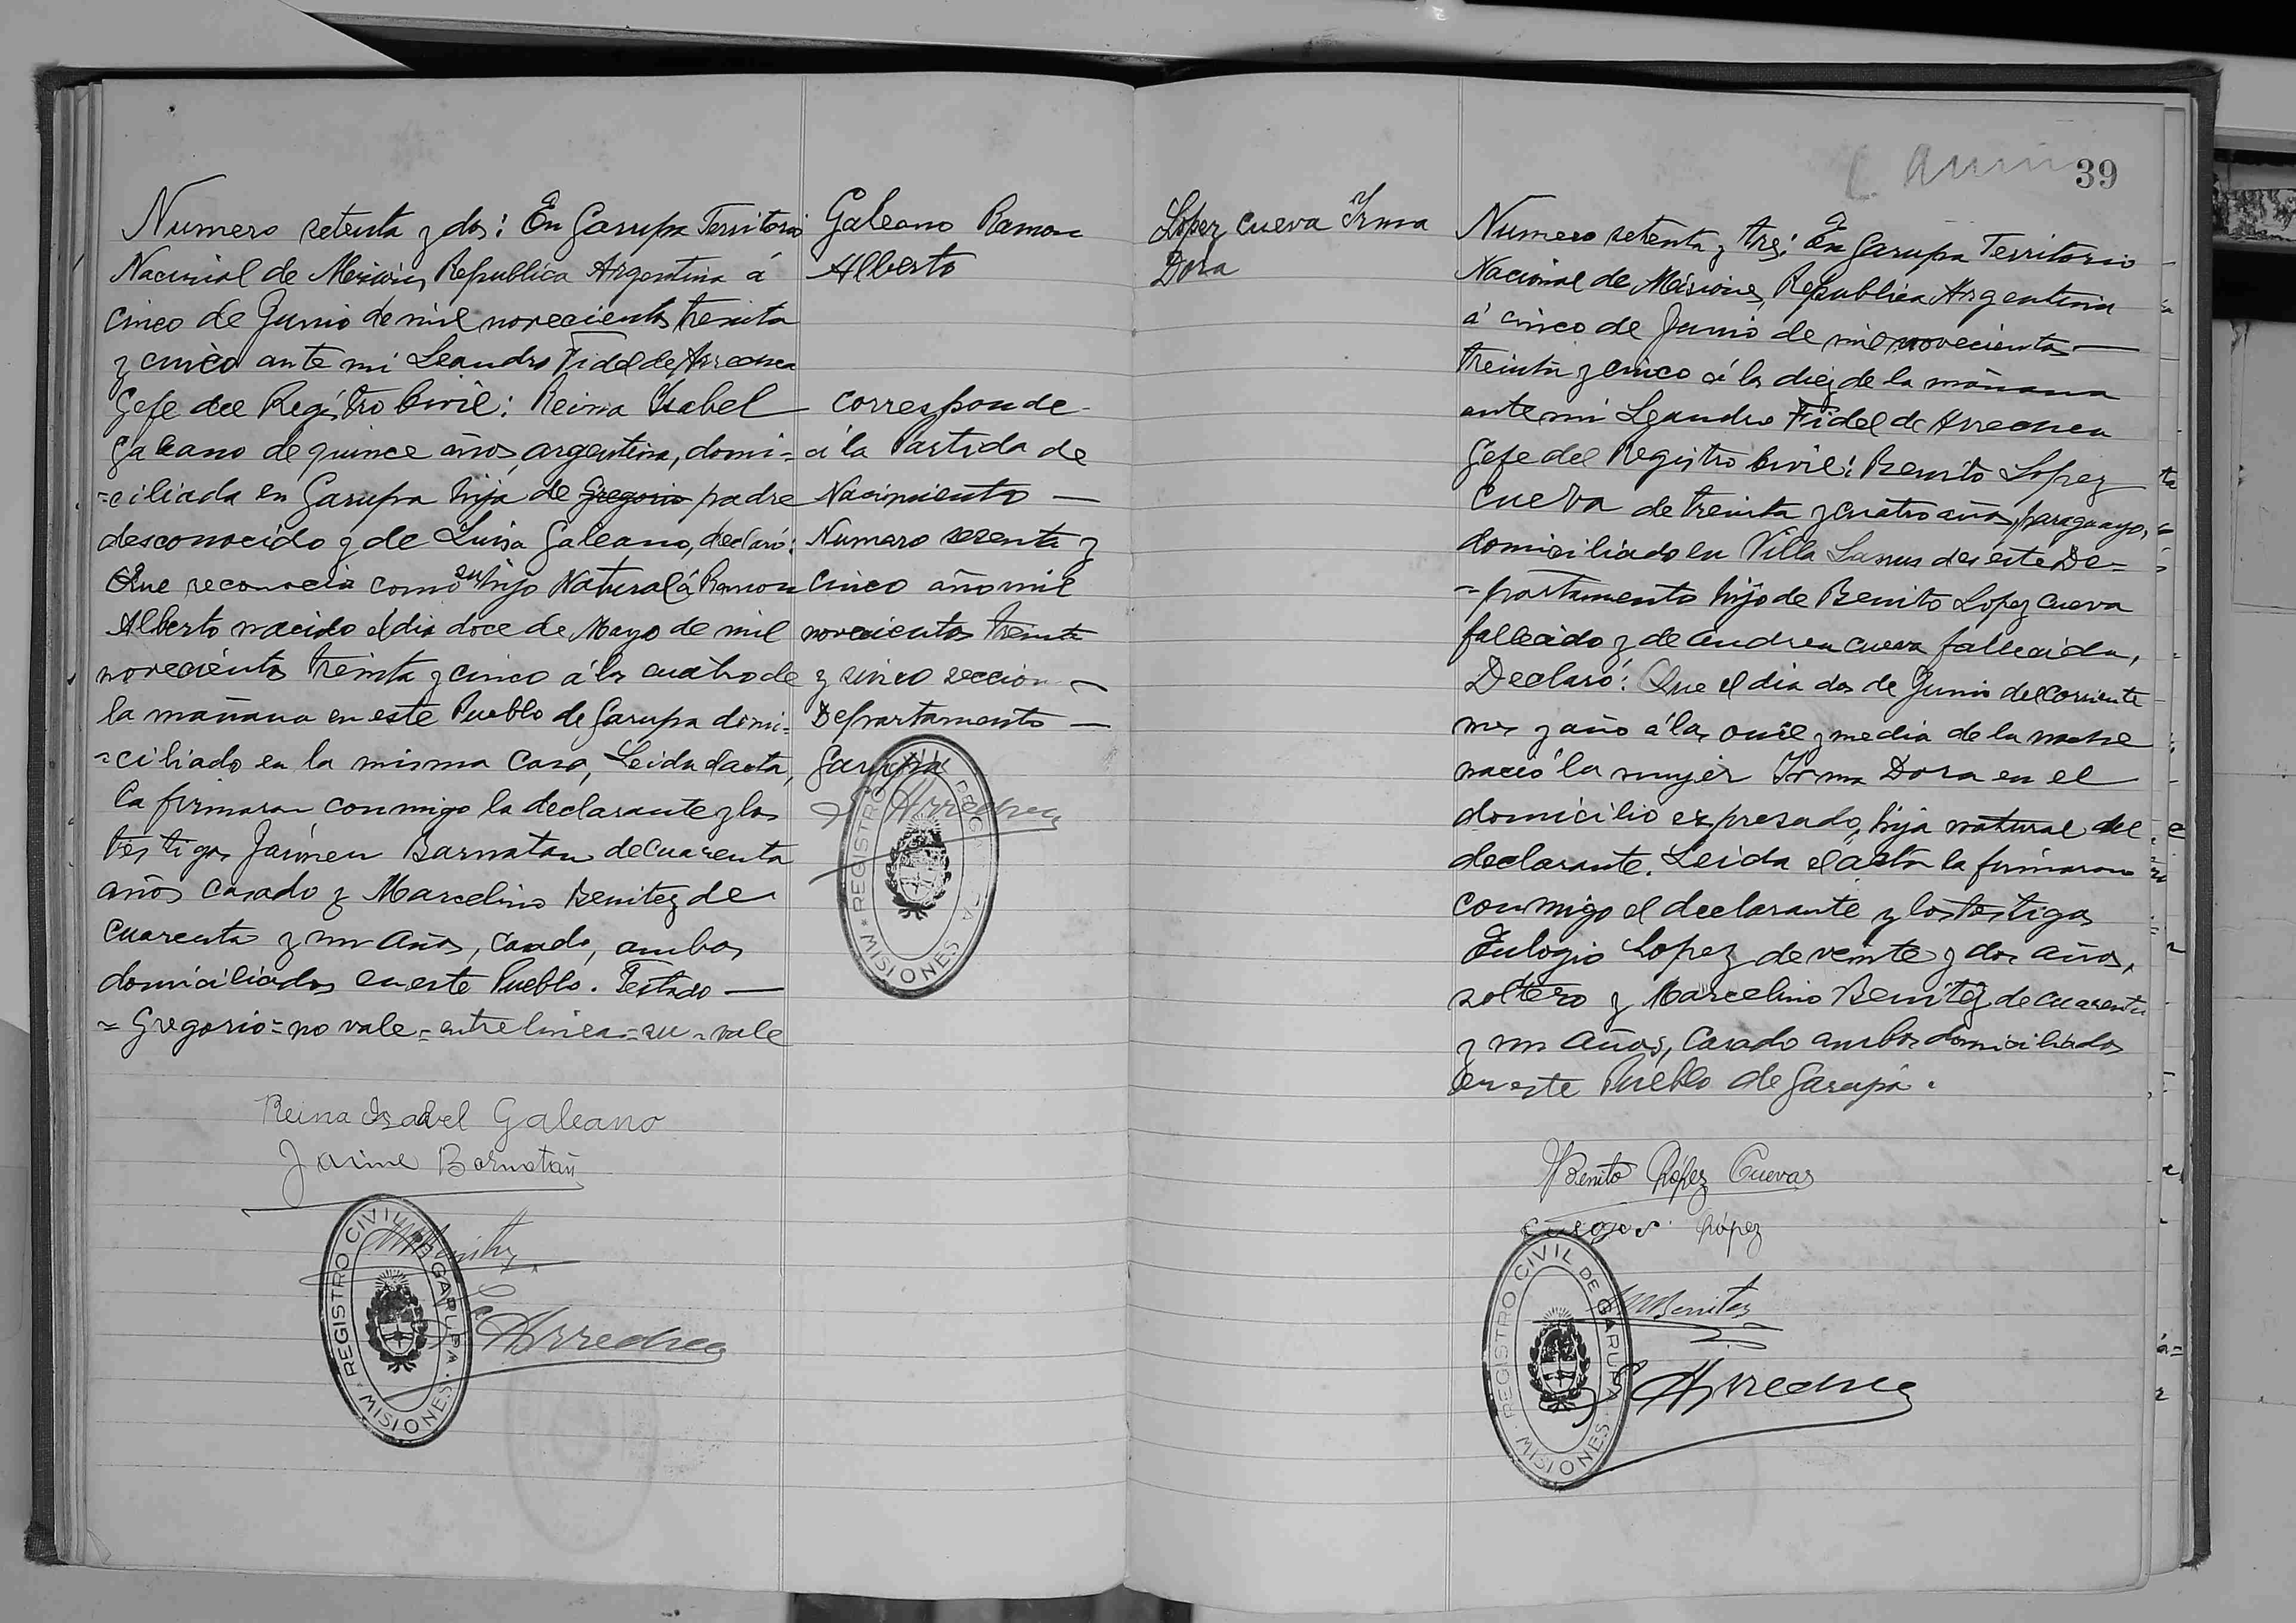 Numero setenta y dos: En Garupa Territorio
Nacional de Misiones Republica Argentina á
cinco de Junio de mil novecientos treinta
y cinco ante mi Leandro Fidel de Arrechea
Gefe del Registro Civil: Reina Isabel
Galeano de quince años, argentina, domi=
=ciliada en Garupa hija de Gregorio padre
desconocido y de Luisa Galeano, declaró:
Que reconocia como su hijo Natural á Ramon
Alberto nacido el dia doce de Mayo de mil
novecientos treinta y cinco á las cuatro de
la mañana en este Pueblo de Garupa domi=
=ciliado en la misma casa, Leida el acta,
la firmaron conmigo la declarante y los
testigos Jaimen Barnatan de cuarenta
años casado y Marcelino Benitez de
cuarenta y un años, casado, ambos
domiciliados en este Pueblo. Testado —
= Gregorio = no vale = entre linea = su = vale
Reina Isabel Galeano
Jaime Barnatán
MBenitez
REGISTRO CIVIL DE GARUPA
MISIONES
Arrechea
Galeano Ramon
Alberto
corresponde
á la Partida de
Nacimiento —
Numero sesenta y
cinco año mil
novecientos treinta
y cinco seccion —
Departamento —
Garupa
Arrechea
REGISTRO CIVIL DE GARUPA
MISIONES
39
Lopez Cueva Irma
Dora
Numero setenta y tres: En Garupa Territorio
Nacional de Misiones, Republica Argentina
á cinco de Junio de mil novecientos —
treinta y cinco á las diez de la mañana
ante mi Leandro Fidel de Arrechea
Gefe del Registro Civil: Benito Lopez
Cueva de treinta y cuatro años, paraguayo,
domiciliado en Villa Lanus de este De=
=partamento hijo de Benito Lopez Cueva
fallecido y de Andrea Cueva fallecida,
Declaró: Que el dia dos de Junio del corriente
mes y año á las once y media de la noche
nació la mujer Irma Dora en el
domicilio expresado, hija natural del
declarante. Leida el acta la firmaron
conmigo el declarante y los testigos
Eulogio Lopez de veinte y dos años,
soltero y Marcelino Benitez de cuarenta
y un años, casado ambos domiciliados
en este Pueblo de Garupa.
Benito López Cuevas
López
MBenitez
REGISTRO CIVIL DE GARUPA
MISIONES
Arrechea